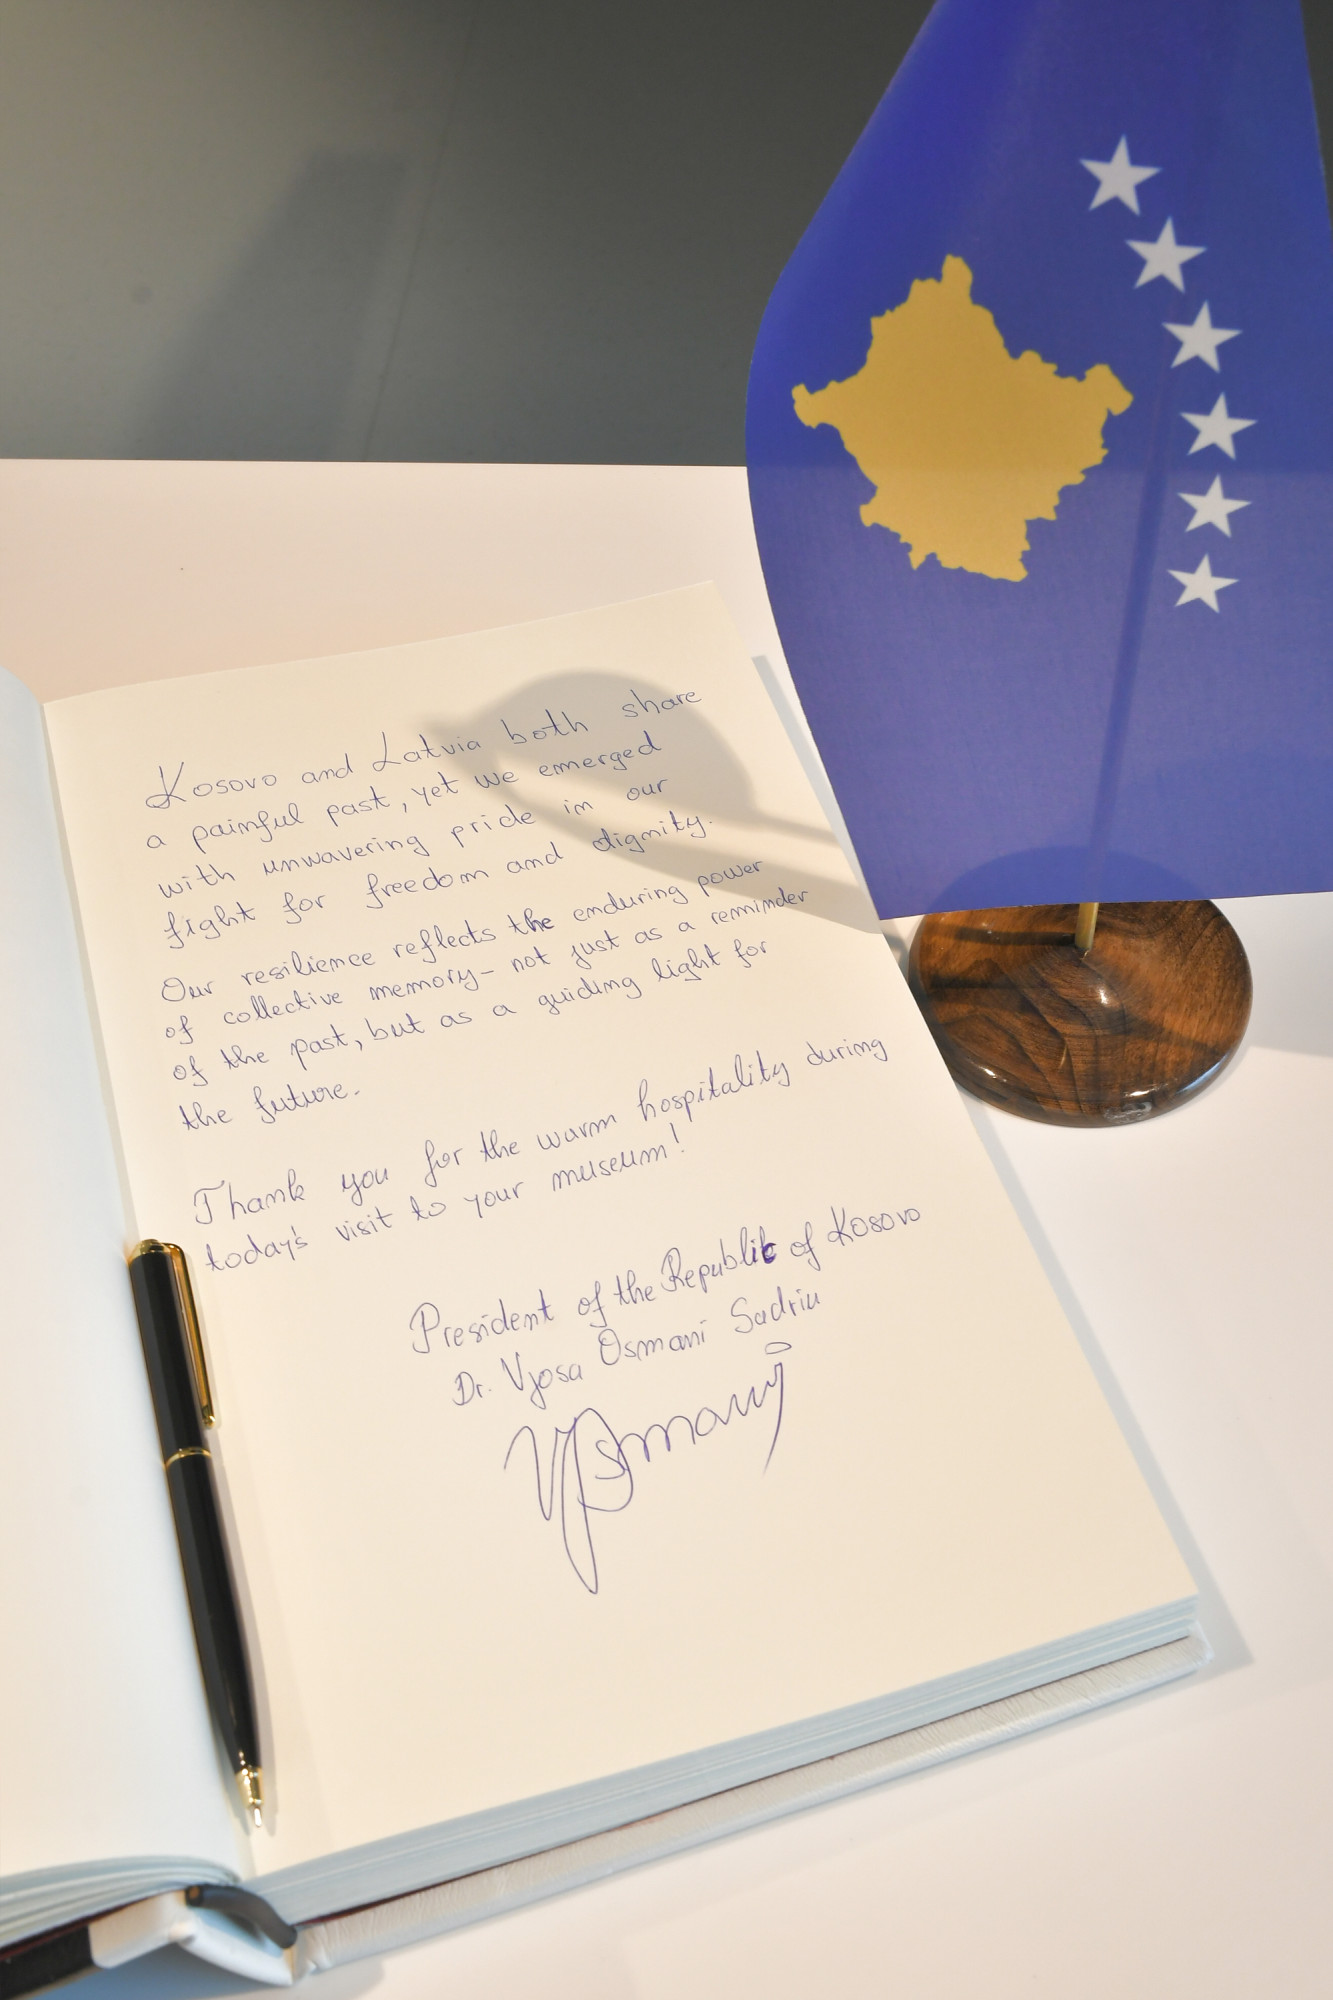 Kosovo and Latvia both share
a painful past, yet we emerged
with unwavering pride in our
fight for freedom and dignity.
Our resilience reflects the enduring power
of collective memory - not just as a reminder
of the past, but as a guiding light for
the future.
Thank you for the warm hospitality during
today's visit to your museum!
President of the Republic of Kosovo
Dr. Vjosa Osmani Sadriu